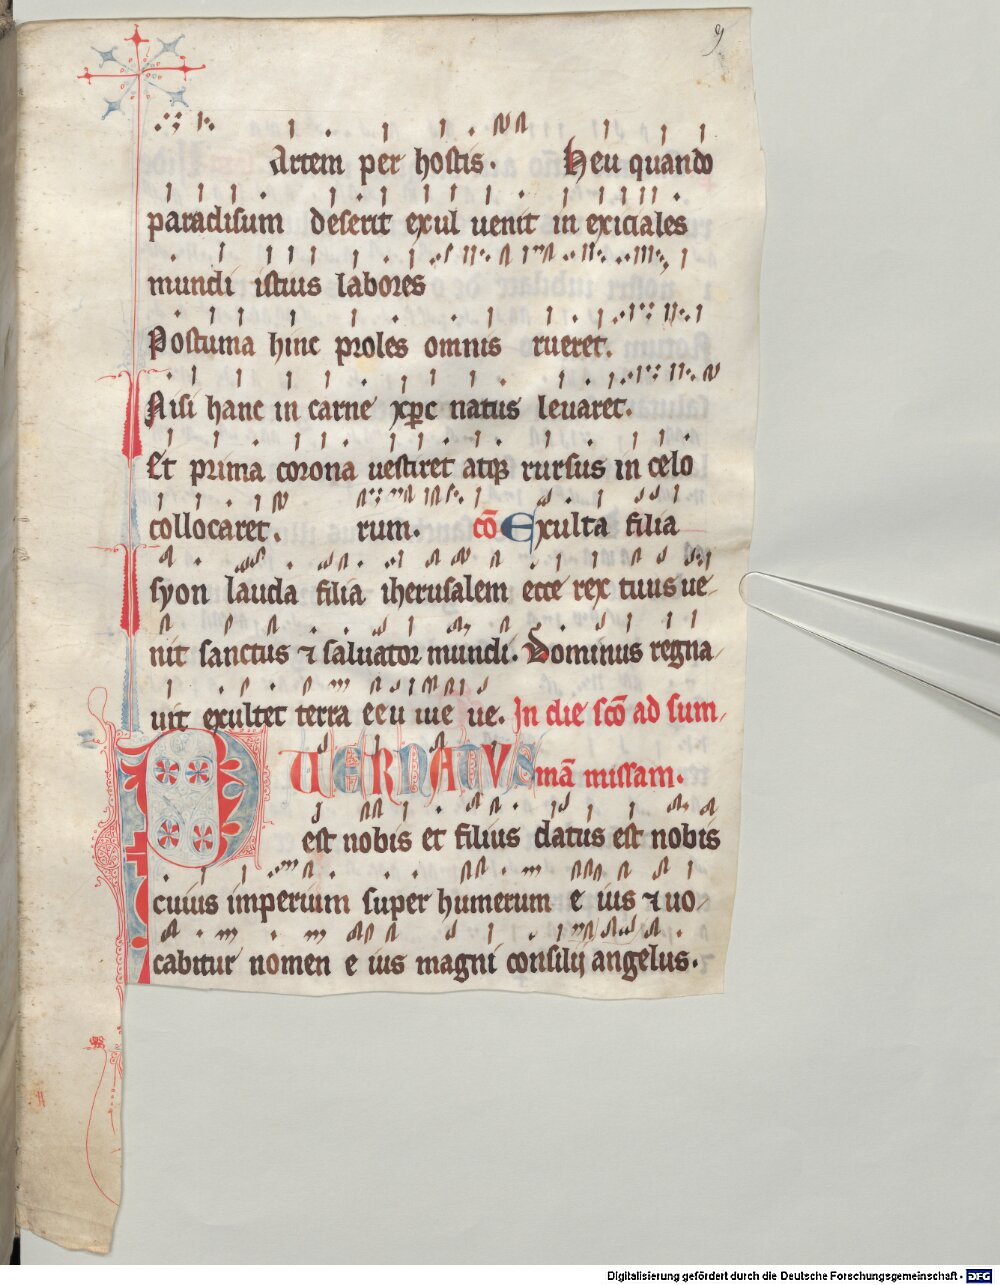 9
Artem per hostis. Heu quando
paradisum deserit exul uenit in exiciales
mundi istius labores
Postuma hinc proles omnis rueret.
Nisi hanc in carne xp̄c natus leuaret.
Et prima corona uestiret atqꝫ rursus in celo
collocaret. rum. cō Exulta filia
syon lauda filia iherusalem ecce rex tuus ue
nit sanctus ⁊ saluator mundi. Dominus regna
uit exultet terra e e u iue ue. In die scō ad sum,
PUERNATUS mā missam.
est nobis et filius datus est nobis
cuius imperium super humerum e ius ⁊ uo
cabitur nomen e ius magni consilij angelus.
Digitalisierung gefördert durch die Deutsche Forschungsgemeinschaft - DFG